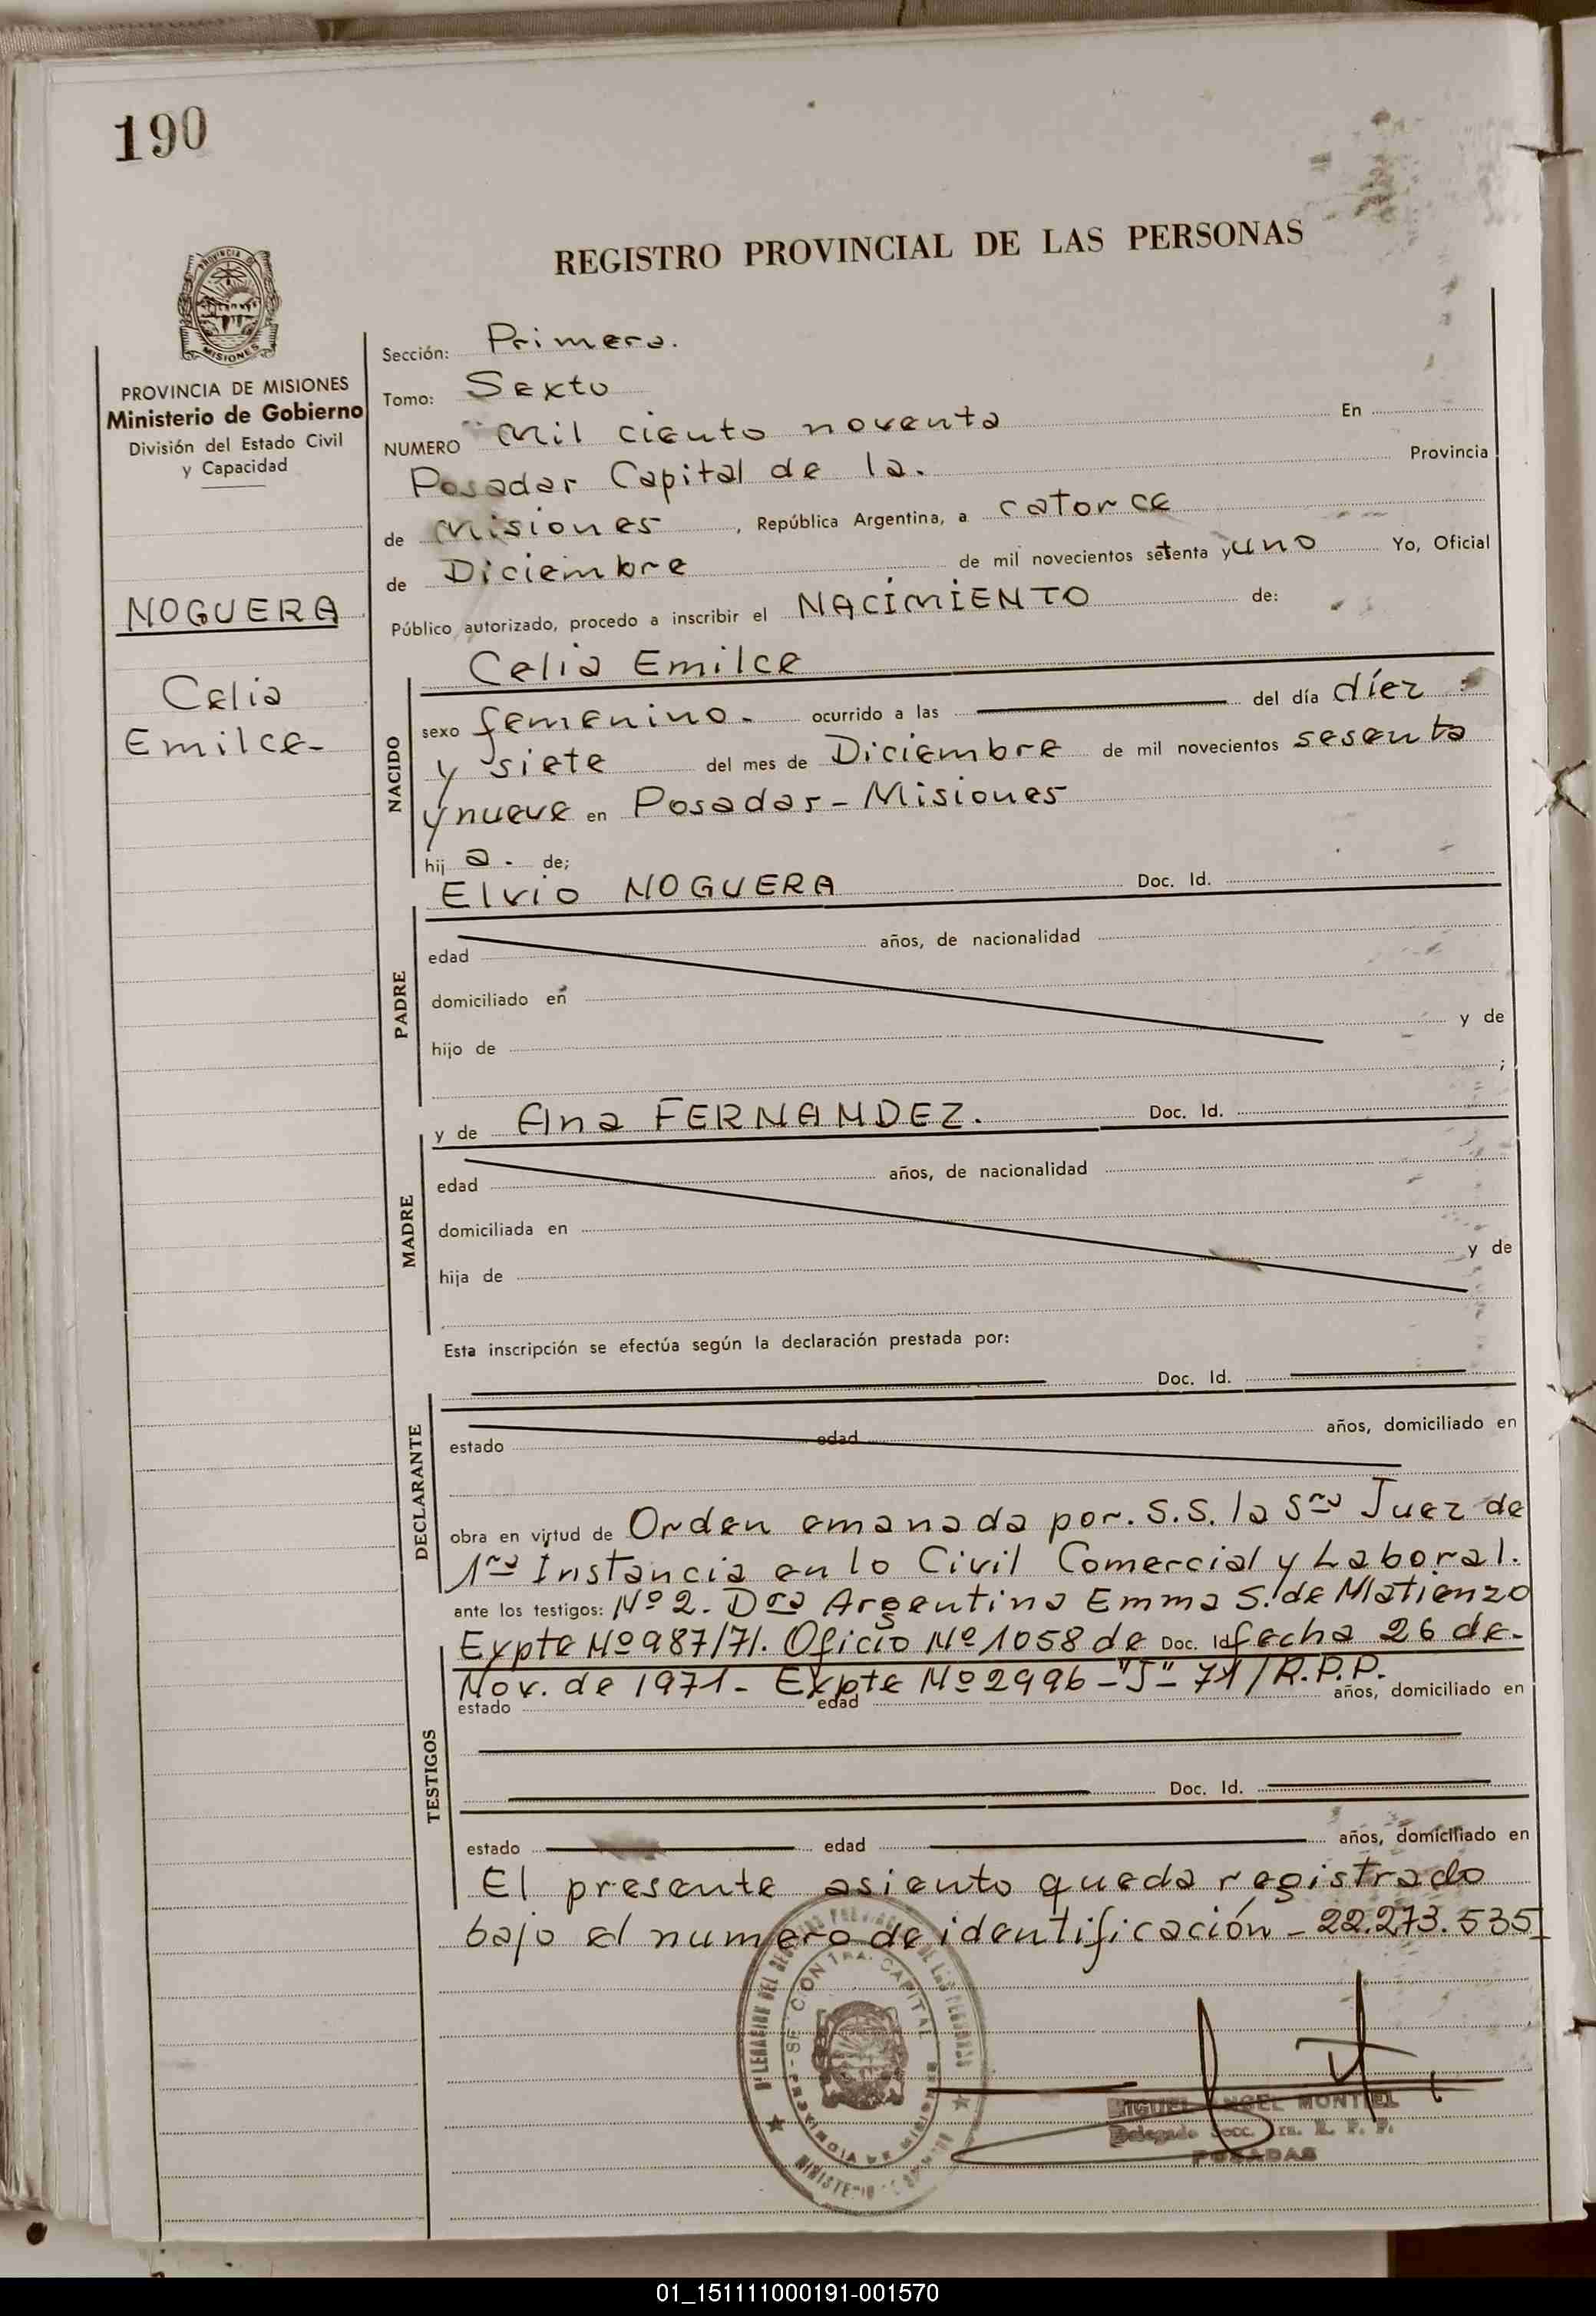 190
REGISTRO PROVINCIAL DE LAS PERSONAS
PROVINCIA DE
MISIONES
PROVINCIA DE MISIONES
Ministerio de Gobierno
División del Estado Civil
y Capacidad
NOGUERA
Celia
Emilce-
Sección: Primera.
Tomo: Sexto
NUMERO Mil ciento noventa En
Posadas Capital de la. Provincia
de Misiones, República Argentina, a catorce
de Diciembre de mil novecientos setenta y uno Yo, Oficial
Público autorizado, procedo a inscribir el NACIMIENTO de:
NACIDO
Celia Emilce
sexo femenino.- ocurrido a las del día díez
y siete del mes de Diciembre de mil novecientos sesenta
y nueve en Posadas - Misiones
hij a. de;
PADRE
Elvio NOGUERA Doc. Id.
edad años, de nacionalidad
domiciliado en
hijo de y de
;
MADRE
y de Ana FERNANDEZ. Doc. Id.
edad años, de nacionalidad
domiciliada en
hija de y de
Esta inscripción se efectúa según la declaración prestada por:
DECLARANTE
Doc. Id.
estado edad años, domiciliado en
obra en virtud de Orden emanada por. S.S. la Sra Juez de
1ra Instancia en lo Civil Comercial y Laboral.
ante los testigos: Nº 2. Dra Argentina Emma S. de Matienzo
TESTIGOS
Expte Nº 987/71. Oficio Nº 1058 de Doc. Id fecha 26 de-
Nov. de 1971- Expte Nº 2996-"J"- 71/R.P.P.
estado edad años, domiciliado en
Doc. Id.
estado edad años, domiciliado en
El presente asiento queda registrado
bajo el numero de identificación - 22.273.535
DELEGACION DEL REGISTRO PROVINCIAL DE LAS PERSONAS
CAPITAL
PROVINCIA DE MISIONES
MIGUEL ANGEL MONTIEL
Delegado Secc. 1ra. R. P. P.
POSADAS
01_151111000191-001570